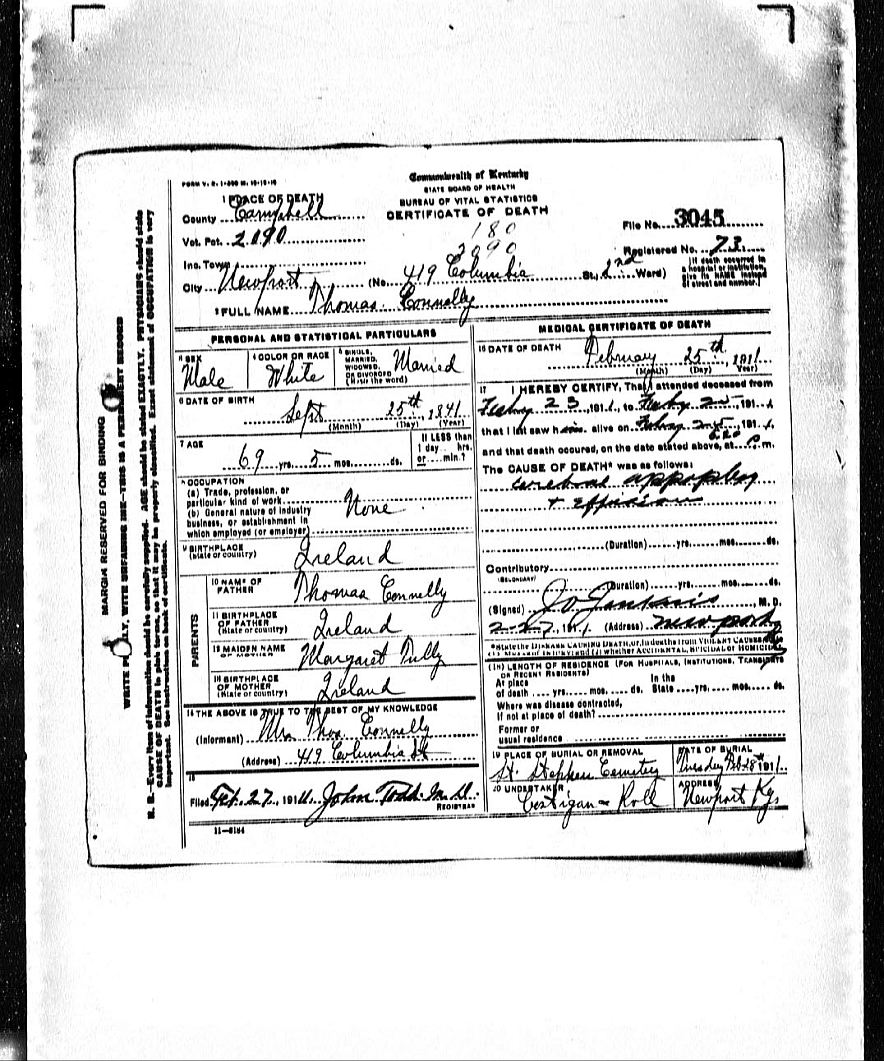 FORM V. S. 1-
Commonwealth of Kentucky
STATE BOARD OF HEALTH
BUREAU OF VITAL STATISTICS
CERTIFICATE OF DEATH
1 PLACE OF DEATH
County Campbell
Vot. Pct. 2090
Inc. Town
City Newport (No. 419 Columbia St., 2nd Ward)
180
2090
File No. 3045
Registered No. 73
[If death occurred in a hospital or institution, give its NAME instead of street and number.]
2 FULL NAME Thomas Connelly
PERSONAL AND STATISTICAL PARTICULARS
3 SEX Male
4 COLOR OR RACE White
5 SINGLE, MARRIED, WIDOWED, OR DIVORCED (Write the word) Married
6 DATE OF BIRTH
Sept 25th, 1841
(Month) (Day) (Year)
7 AGE
69 yrs. 5 mos. ds.
If LESS than 1 day hrs. or min.?
8 OCCUPATION
(a) Trade, profession, or
particular kind of work
(b) General nature of industry
business, or establishment in
which employed (or employer)
None
9 BIRTHPLACE
(State or country) Ireland
PARENTS
10 NAME OF
FATHER Thomas Connelly
11 BIRTHPLACE
OF FATHER
(State or country) Ireland
12 MAIDEN NAME
OF MOTHER Margaret Tully
13 BIRTHPLACE
OF MOTHER
(State or country) Ireland
14 THE ABOVE IS TRUE TO THE BEST OF MY KNOWLEDGE
(Informant) Mrs Thos. Connelly
(Address) 419 Columbia St
15
Filed Feb. 27, 1911. John Todd M. D.
REGISTRAR
11-6184
MEDICAL CERTIFICATE OF DEATH
16 DATE OF DEATH
February 25th, 1911
(Month) (Day) (Year)
17 I HEREBY CERTIFY, That I attended deceased from
Feby 23, 1911, to Feby 25, 1911,
that I last saw him alive on Feby 25, 1911,
and that death occured, on the date stated above, at 6.20 P. m.
The CAUSE OF DEATH* was as follows:
cerebral appoplexy
+ Effusion
(Duration) yrs. mos. ds.
Contributory
(SECONDARY)
(Duration) yrs. mos. ds.
(Signed) Jo Jenkins, M. D.
2-27, 1911 (Address) Newport Ky
*State the DISEASE CAUSING DEATH, or, in deaths from VIOLENT CAUSES
(1) MEANS OF INJURY; and (2) whether ACCIDENTAL, SUICIDAL or HOMICIDAL
(18) LENGTH OF RESIDENCE (FOR HOSPITALS, INSTITUTIONS, TRANSIENTS
OR RECENT RESIDENTS)
At place of death yrs. mos. ds. In the State yrs. mos. ds.
Where was disease contracted,
if not at place of death?
Former or
usual residence
19 PLACE OF BURIAL OR REMOVAL
St. Stephen Cemetery
DATE OF BURIAL
Tuesday Feb 28th 1911
20 UNDERTAKER
Costigan & Roll
ADDRESS
Newport Ky.
MARGIN RESERVED FOR BINDING
WRITE PLAINLY, WITH UNFADING INK—THIS IS A PERMANENT RECORD
N. B.—Every item of information should be carefully supplied. AGE should be stated EXACTLY. PHYSICIANS should state
CAUSE OF DEATH in plain terms, so that it may be properly classified. Exact statement of OCCUPATION is very
important. See instructions on back of certificate.